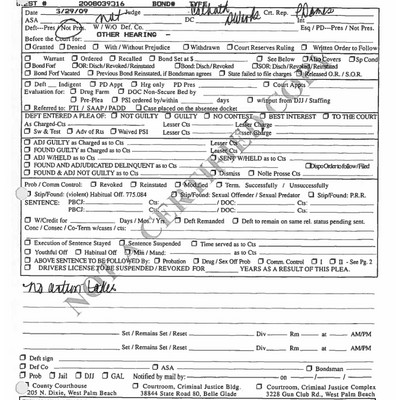 EST # 2008039316 BOND# TYPE:
Date 3/29/09 Judge DC Crt. Rep.
ASA Not
Deft—Pres / Not Pres. W / W/O Def. Co. Esq / PD—Pres / Not Pres.
Before the Court for: OTHER HEARING -
Granted Denied With / Without Prejudice Withdrawn Court Reserves Ruling Written Order to Follow
Warrant Ordered Recalled Bond Set $ See Below Also Covers Sp Cond
Bond Forf SOR: Disch / Revoked / Reinstated Bond: Disch / Revoked / Reinstated
Bond Forf Vacated Previous Bond Reinstated, if Bondsman agrees State failed to file charges Released O.R. / S.O.R.
Deft Indigent PD Appt Hrg only PD Court Appts
Evaluation for: Drug Farm DOC Non-Secure Bed by
Pre-Plea PSI ordered by/within days w/input from DJJ / Staffing
Referred to: PTI / SAAP / PADD Case placed on the absence docket
DEFT ENTERED A PLEA OF: NOT GUILTY GUILTY NO CONTEST BEST INTEREST TO THE COURT
As Charged-Cts Lesser Cts Lesser Charge
Sw & Test Adv of Rts Waived PSI Lesser Cts Lesser Charge
ADJ GUILTY as Charged as to Cts Lesser Cts
FOUND GUILTY as Charged as to Cts Lesser Cts
ADJ W/HELD as to Cts SENT W/HELD as to Cts
FOUND AND ADJUDICATED DELINQUENT as to Cts Dispo Order to follow/Filed
FOUND & ADJ NOT GUILTY as to Cts Dismiss Nolle Prosse Cts
Prob / Comm Control: Revoked Reinstated Modified Term. Successfully / Unsuccessfully
Stip/Found: (violent) Habitual Off. 775.084 Stip/Found: Sexual Offender / Sexual Predator Stip/Found: P.R.R.
SENTENCE: PBCJ: Cts / DOC: Cts:
PBCJ: Cts: / DOC: Cts:
W/Credit for Days / Mo. / Yrs Deft Remanded Deft to remain on same rel. status pending sent.
Conc / Consec / Co-Term w/cases / cts:
Execution of Sentence Stayed Sentence Suspended Time served as to Cts
Youthful Off Habitual Off Min / Mandatory as to Cts
ABOVE SENTENCE TO BE FOLLOWED BY: Probation Drug / Sex Off Prob Comm. Control I II - See Pg. 2
DRIVERS LICENSE TO SUSPENDED / REVOKED FOR YEARS AS A RESULT OF THIS PLEA.
No action taken
Set / Remains Set / Reset Div Rm at AM/PM
Set / Remains Set / Reset Div Rm at AM/PM
Deft sign
Def Co ASA Bondsman
Prob Jail DJJ GAL Notified by mail by: on / /
County Courthouse Courtroom, Criminal Justice Bldg. Courtroom, Criminal Justice Complex
205 N. Dixie, West Palm Beach 38844 State Road 80, Belle Glade 3228 Gun Club Rd., West Palm Beach
NOT A CERTIFIED COPY